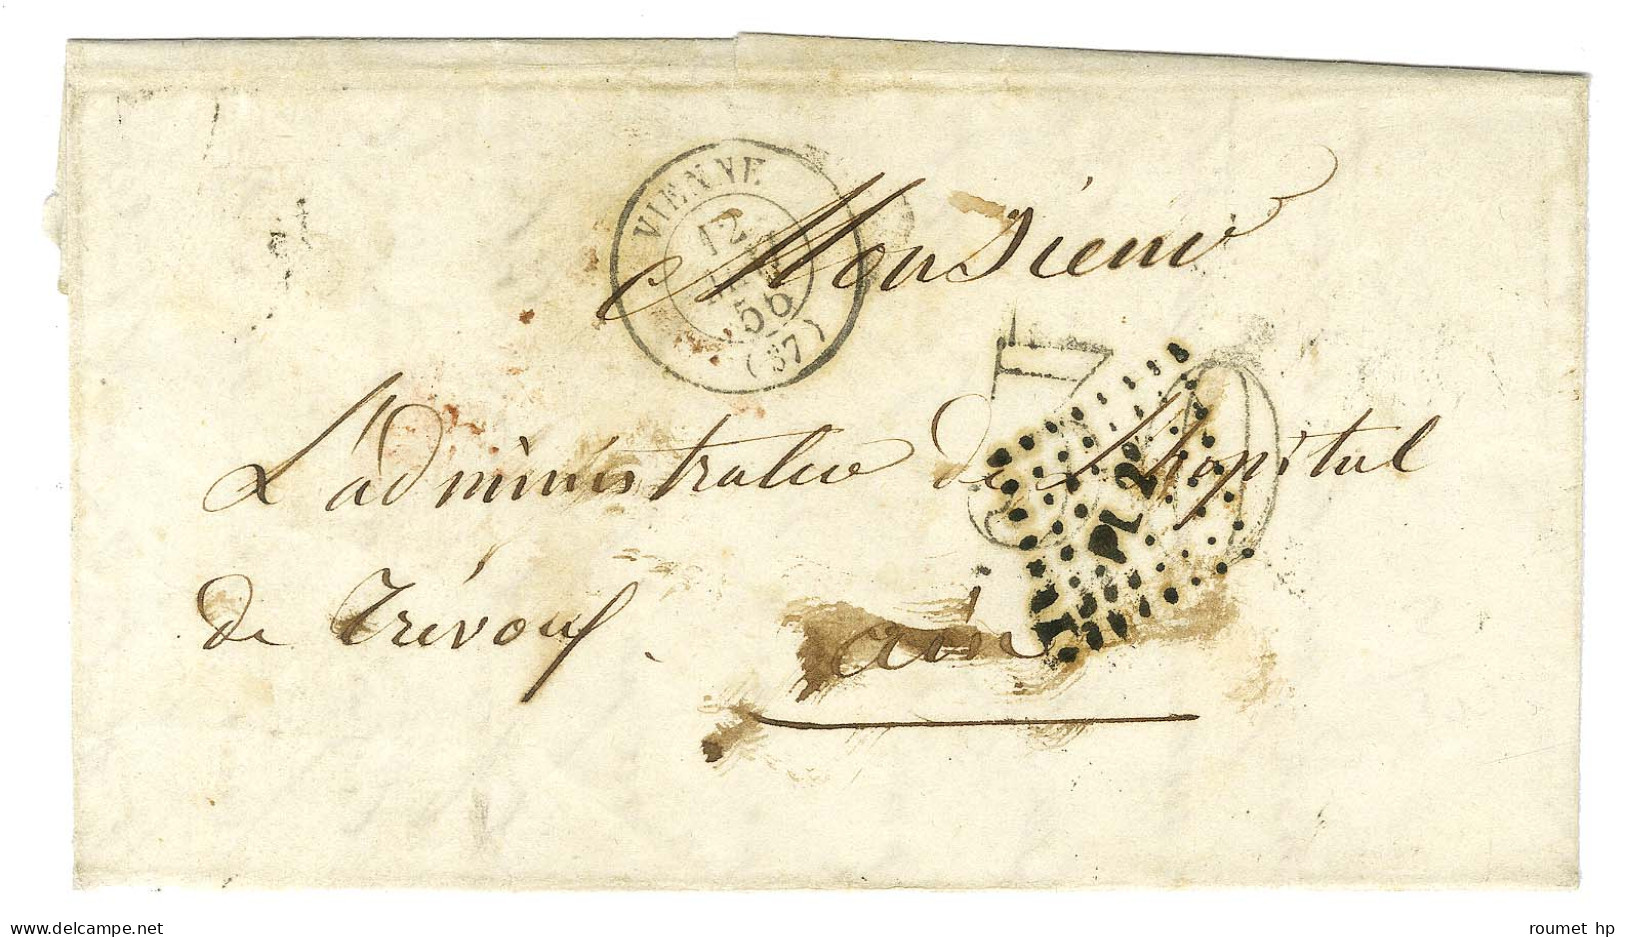 VIENNE
12
56
(37)
Monsieur
L'administrateur de l'hopital
de Trévoux.
ain
30
delcampe.net
roumet hp